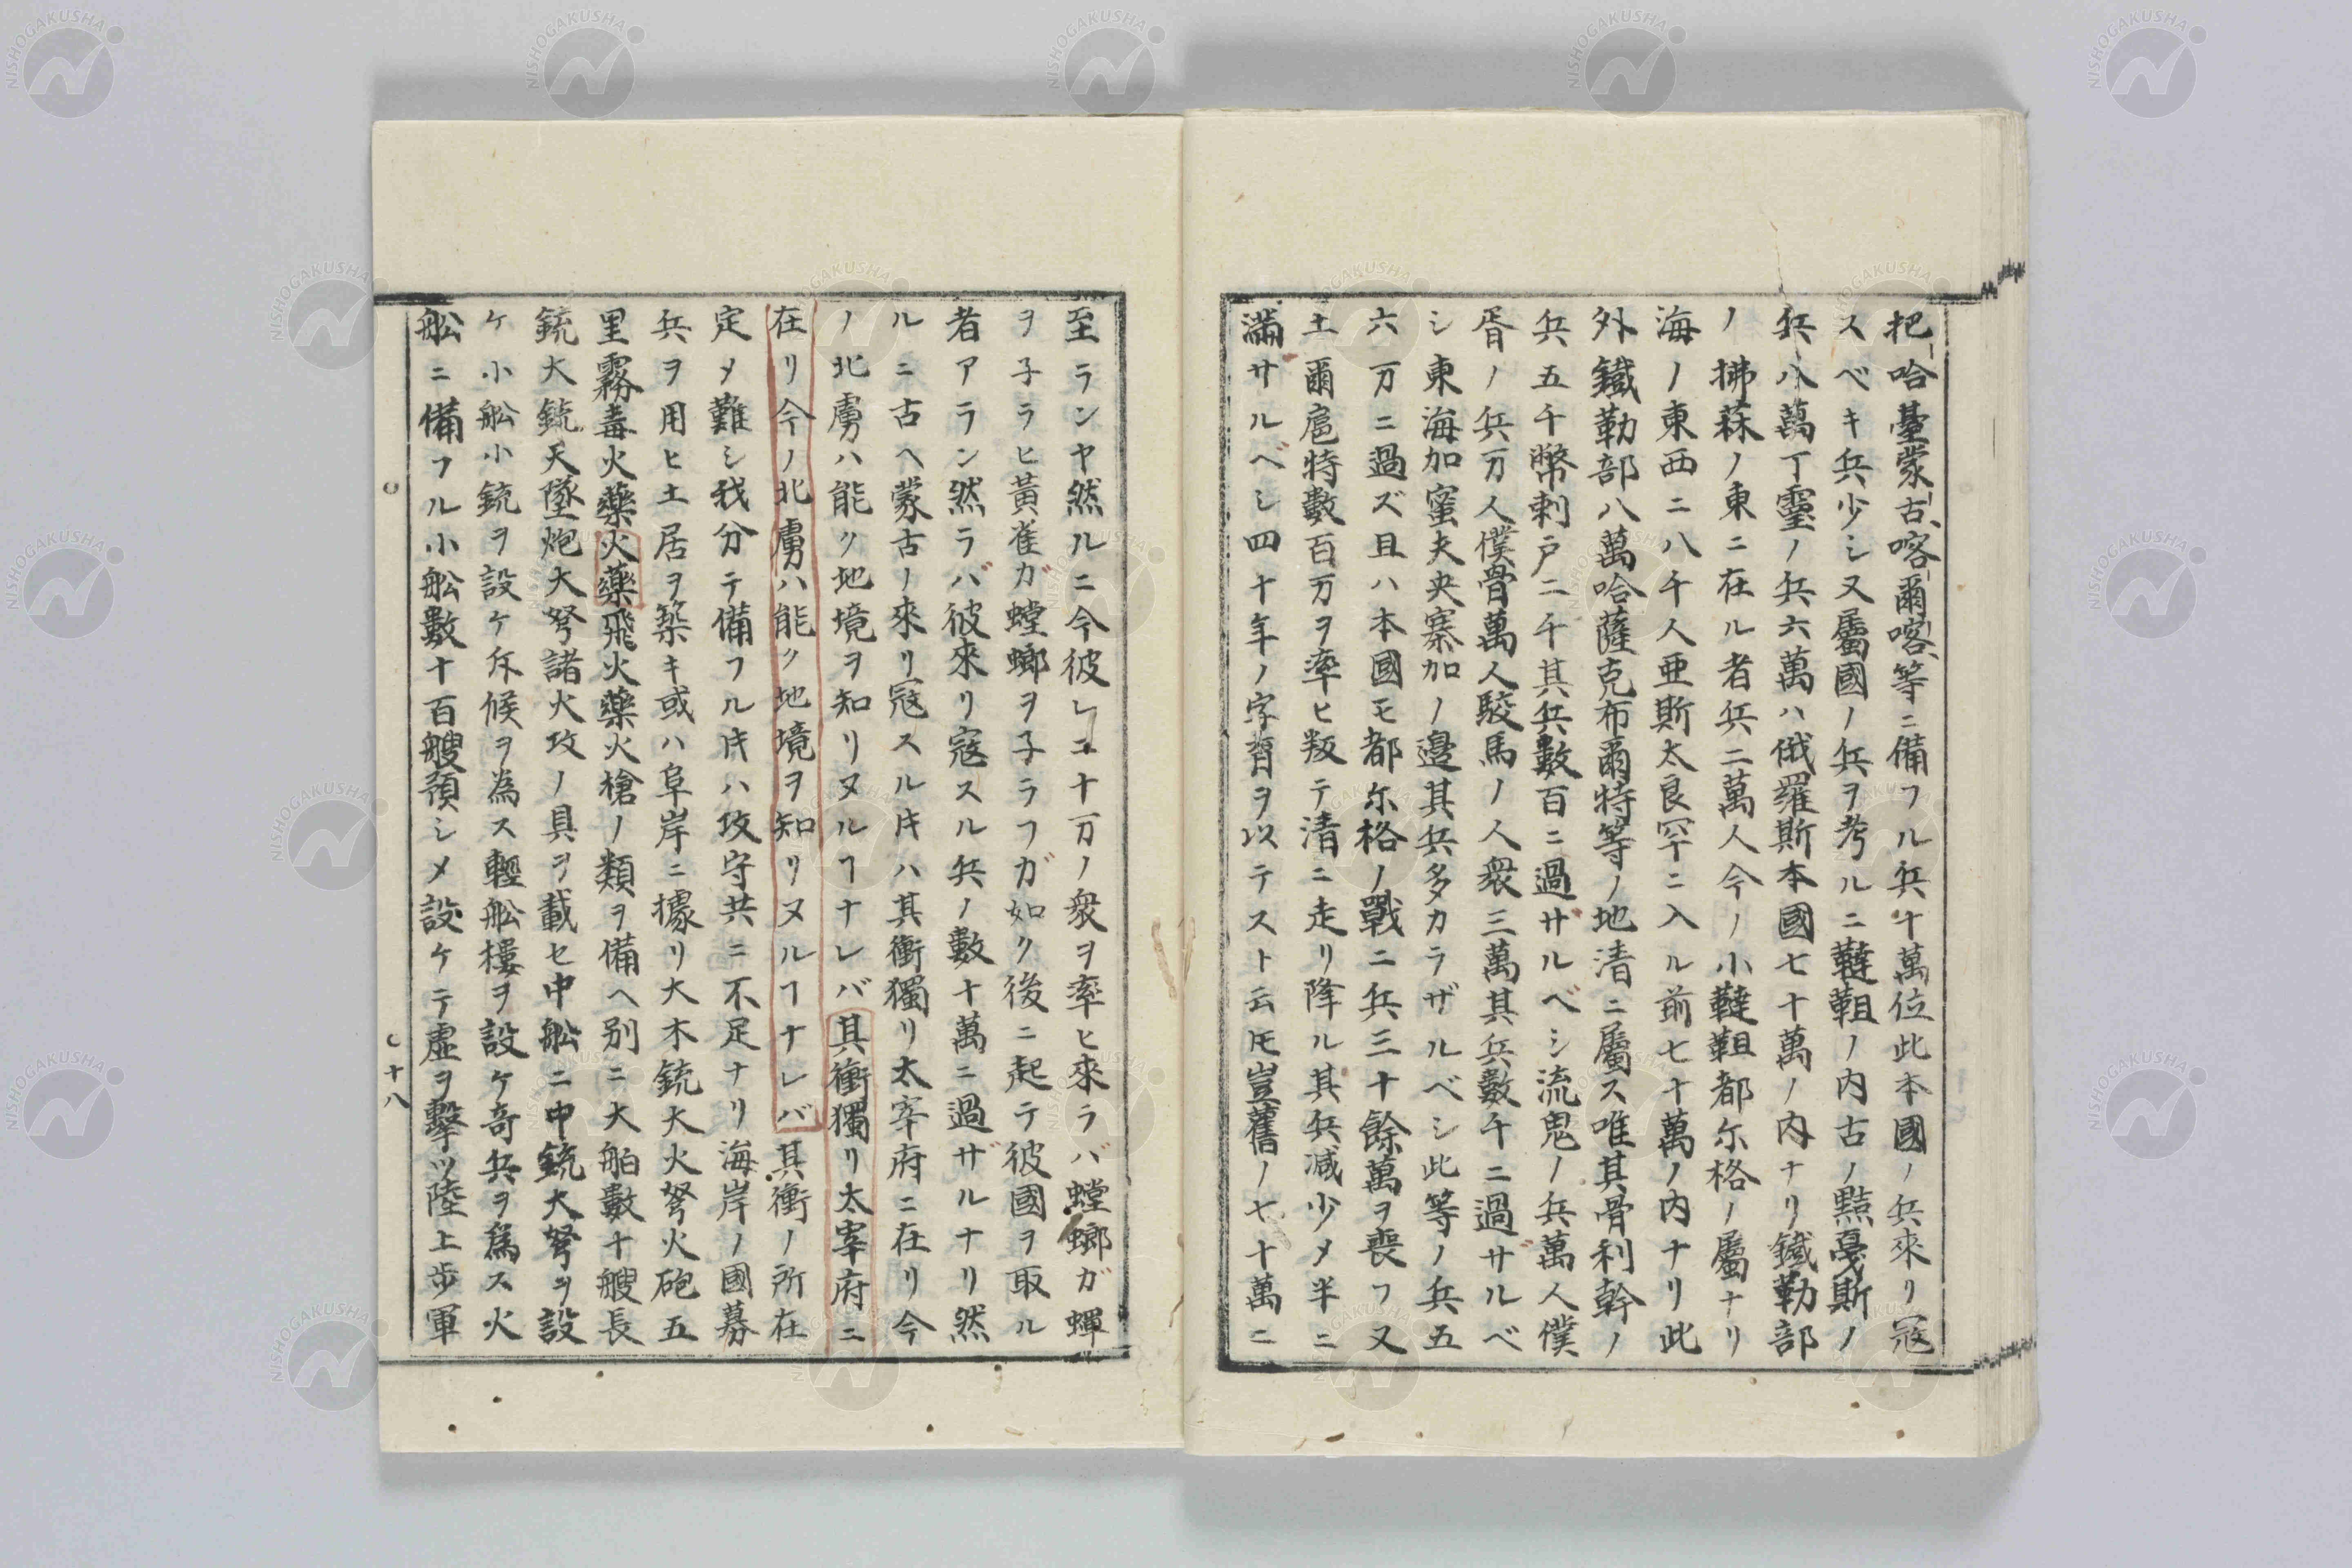 把哈臺蒙古喀爾喀等ニ備フル兵十萬位此本國ノ兵來リ寇
スベキ兵少シ又屬國ノ兵ヲ考ルニ韃靼ノ内古ノ黠戛斯ノ
兵八萬丁靈ノ兵六萬ハ俄羅斯本國七十萬ノ内ナリ鐵勒部
ノ拂菻ノ東ニ在ル者兵二萬人今ノ小韃靼都尓格ノ屬ナリ
海ノ東西ニ八千人亜斯太良罕ニ入ル前七十萬ノ内ナリ此
外鐵勒部八萬哈薩克布爾特等ノ地清ニ屬ス唯其骨利幹ノ
兵五千幣剌戸二千其兵數百ニ過サルベシ流鬼ノ兵萬人僕
胥ノ兵万人僕骨萬人駮馬ノ人衆三萬其兵數千ニ過サルベ
シ東海加蜜夫夾寨加ノ邊其兵多カラザルベシ此等ノ兵五
六万ニ過ズ且ハ本國モ都尓格ノ戰ニ兵三十餘萬ヲ喪フ又
土爾扈特數百万ヲ率ヒ叛テ清ニ走リ降ル其兵減少メ半ニ
滿サルベシ四十年ノ字育ヲ以テスト云𪜈豈舊ノ七十萬ニ
至ランヤ然ルニ今彼レニ十万ノ衆ヲ率ヒ來ラバ螳螂ガ蟬
ヲ子ラヒ黃雀ガ螳螂ヲ子ラフガ如ク後ニ起テ彼國ヲ取ル
者アラン然ラバ彼來リ寇スル兵ノ數十萬ニ過ザルナリ然
ルニ古ヘ蒙古ノ來リ寇スル片ハ其衝獨リ太宰府ニ在リ今
ノ北虜ハ能ク地境ヲ知リヌルヿナレバ其衝獨リ太宰府ニ
在リ今ノ北虜ハ能ク地境ヲ知リヌルヿナレバ其衝ノ所在
定メ難シ我分テ備フル片ハ攻守共ニ不足ナリ海岸ノ國募
兵ヲ用ヒ土居ヲ築キ或ハ阜岸ニ據リ大木銃大火弩火砲五
里霧毒火藥火藥飛火藥火槍ノ類ヲ備ヘ別ニ大舶數十艘長
銃大銃天墜炮大弩諸火攻ノ具ヲ載セ中舩ニ中銃大弩ヲ設
ケ小舩小銃ヲ設ケ斥候ヲ為ス輕舩樓ヲ設ケ奇兵ヲ爲ス火
舩ニ備フル小舩數十百艘預シメ設ケテ虛ヲ擊ツ陸上歩軍
十八
NISHOGAKUSHA